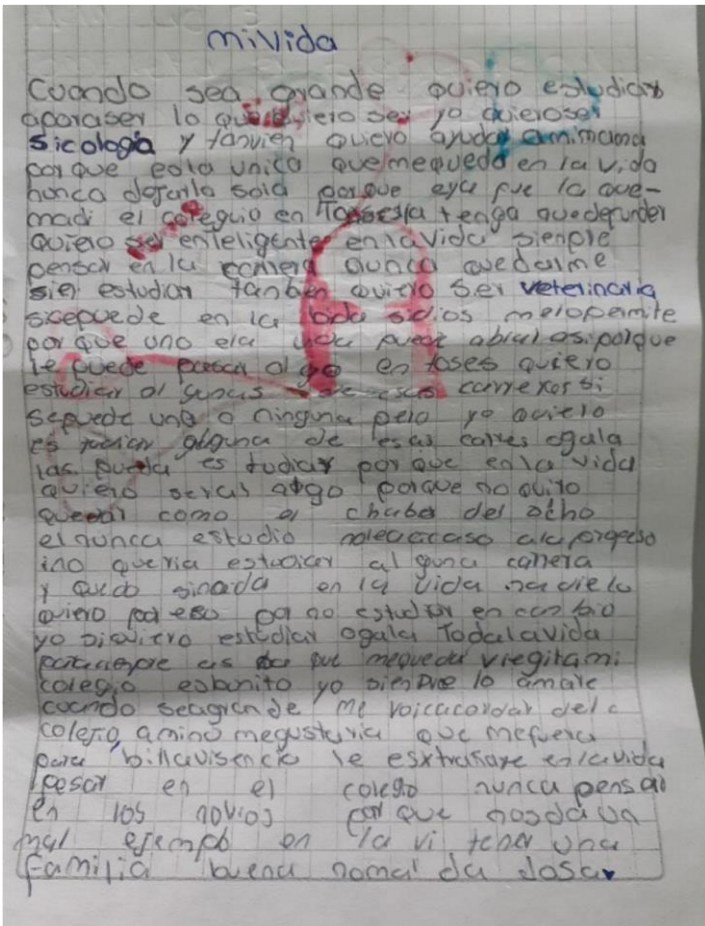 mi vida
Cuando sea grande quiero estudiar
aparaser lo que quiero ser yo quieroser
sicologia y tanvien quiero ayudar amimama
porque esla unico quemequeda en la vida
nunca dejarla sola porque eya fue la que
madi el coleguio en tenga quedefunder
quiero ser enteligente enlavida sienple
pensar en la carrera nunca quedalme
sien estudiar tanbien quiero ser veterinaria
sisepuede en la bida sidios melopermite
porque uno ela vida puede porque
le puede pasar algo entoses quiero
estudiar algunas de esas carrexas si
sepuede una o ninguna pelo yo quielo
estudiar alguna de esas carres ogala
las pueda es tudiar por que enla vida
quiero seras algo porque no quiro
quedal como el chabo del ocho
elnunca estudio
ino queria estudiar al guna carrera
y quedo sinada en la vida
quiero por eso pa no estudiar en canbio
yo siquiero estudiar ogala Todalavida
es que mequeda viegita mi
colegio esbunito yo sienpre lo amare
cuando seagrande me voiacacordar del
colegio, amino megustaria que mefuera
para billavisencio le esxtrañare enlavida
pesar en el colegio nunca pensar
en los novios por que nosda un
mal ejemplo en la vi tener una
familia buena